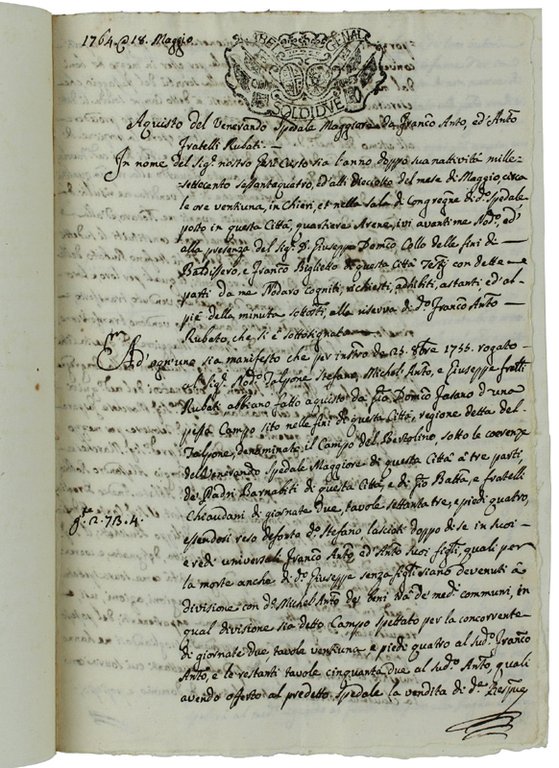 1764 @ 18. Maggio
SOLDI DVE
Aquisto del Venerando Spedale Maggiore da Franco Anto, ed' Anto
Fratelli Rubati. -
In nome del Sigr nostro Gesù Cristo sia l'anno doppo sua natività mille-
settecento sessantaquatro, ed' alli dieciotto del mese di Maggio, circa
le ore ventiuna, in Chieri, et nella Sala di Congregne di do Spedale
posto in questa Città, quartiere Arene, ivi avanti me Nodo, ed'
alla presenza del Sigr D. Giuseppe Domco Collo delle fini di
Baldissero, e Franco Biglietto di questa Città Testj con dette
parti da me Nodaro cogniti, richiesti, adhibiti, astanti ed' al-
piè della minuta sottotti, alla riserva di do Franco Anto
Rubato, che si è sottosegnato
Ad' ogn'uno sia manifesto che per instro de 25. 8bre 1755. rogato
dal Sigr Nodo Talpone Stefano, Michel Anto, e Giuseppe fratelli
Rubati abbiano fatto aquisto da Gio Domco Fasano d'una
pezza Campo sito nelle fini di questa Città, regione detta del
Talpone, denominato il Campo del Bertolino, sotto le coerenze
del Venerando Spedale Maggiore di questa Città à tre parti
de' Padri Barnabiti di questa Città, e di Gio Batta, e fratelli
Chiaudani di giornate due, tavole settanta tre, e piedi quatro,
gte 2. 73. 4.
essendosi reso defonto do Stefano lasciati doppo di se in suoi
eredi universali Franco Anto, ed' Anto suoi figlj, quali per
la morte anche di do Giuseppe senza figlj siano devenuti à
divisione con do Michel Anto de' beni tra de' medmi communi, in
qual divisione sia detto Campo spettato per la concorrente
di giornate due tavole ventiuna, e piedi quatro al sudo Franco
Anto, e le restanti tavole cinquanta due al sudo Anto, quali
avendo offerto al predetto Spedale la vendita di de